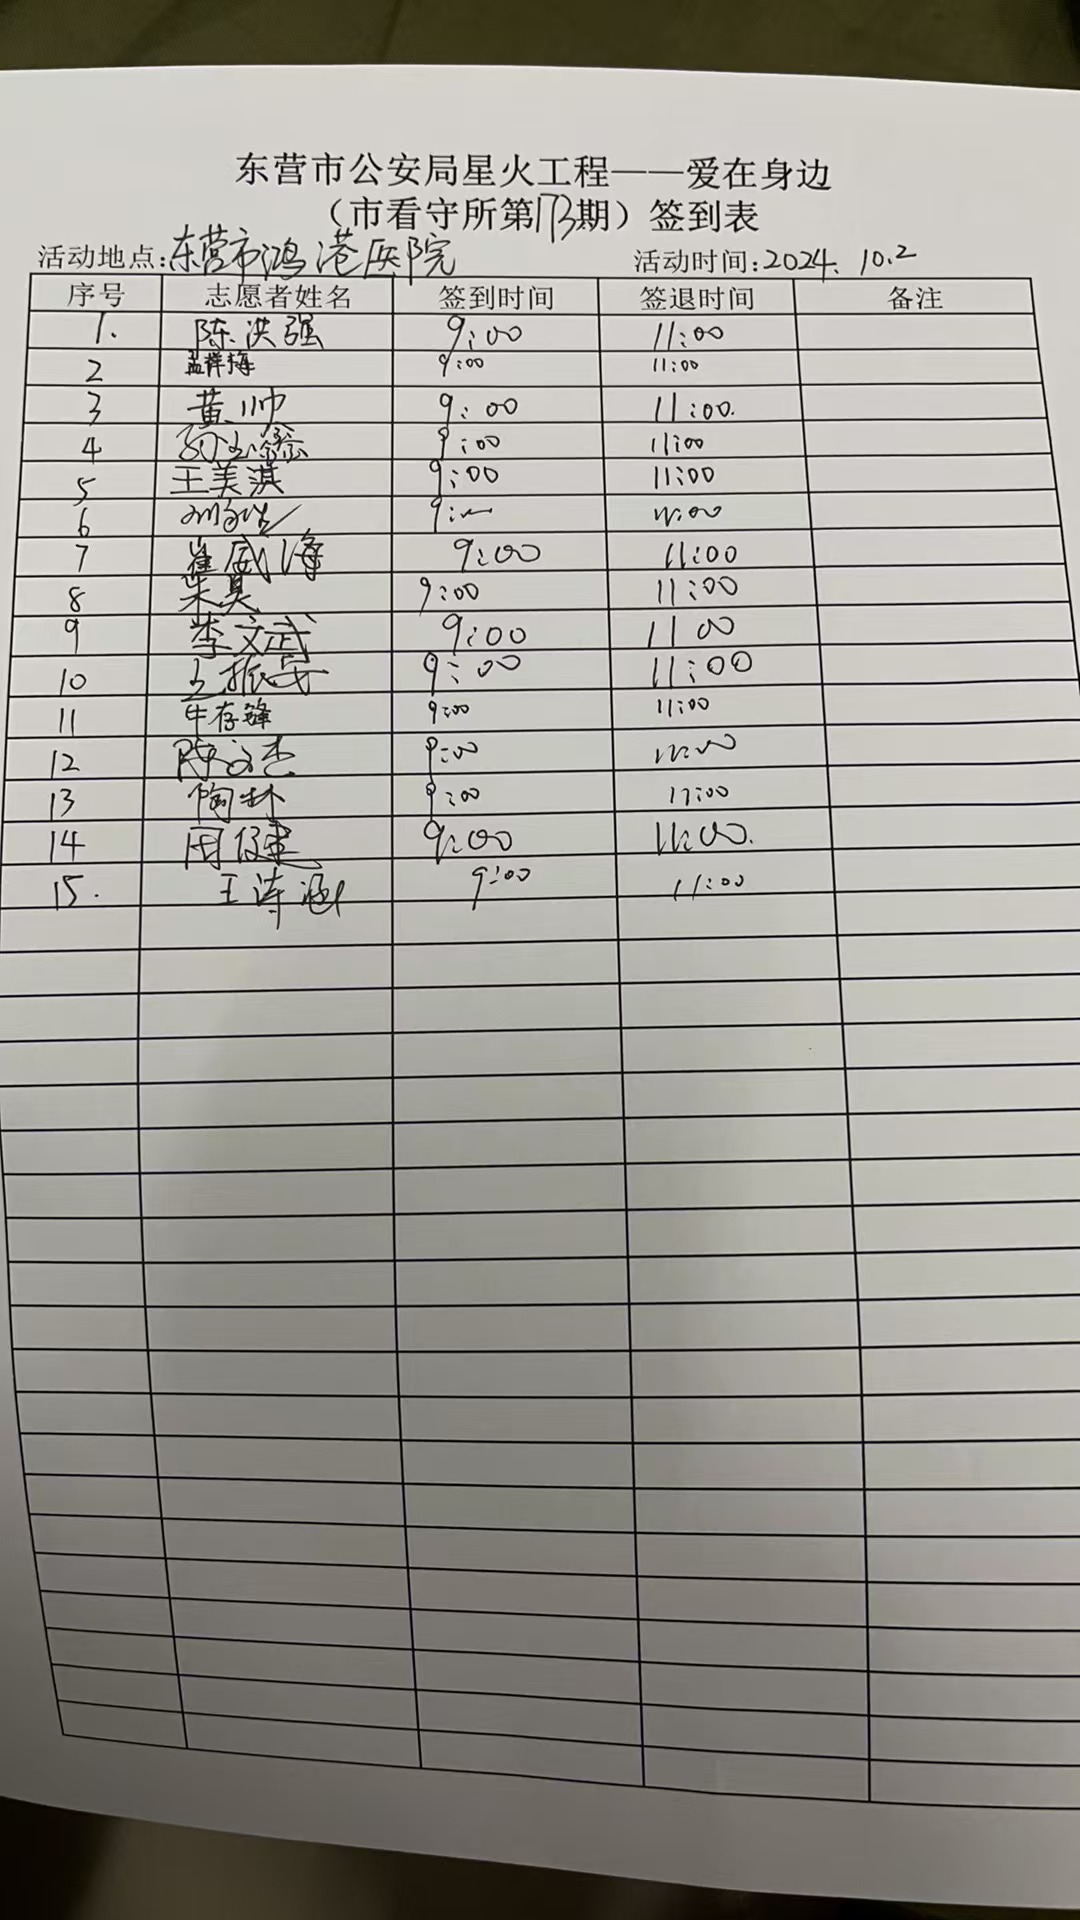 东营市公安局星火工程——爱在身边
（市看守所第173期）签到表
活动地点:东营市鸿港医院 活动时间:2024.10.2
序号 志愿者姓名 签到时间 签退时间 备注
1. 陈洪强 9:00 11:00
2 孟祥梅 9:00 11:00
3 黄帅 9:00 11:00.
4 9:00 11:00
5 王美淇 9:00 11:00
6 9: 11:00
7 崔威海 9:00 11:00
8 朱昊 9:00 11:00
9 李文武 9:00 11 00
10 9:00 11:00
11 牛存锋 9:00 11:00
12 陈文杰 9:00 11:00
13 陶林 9:00 11:00
14 周俊建 9:00 11:00.
15. 王涛 9:00 11:00